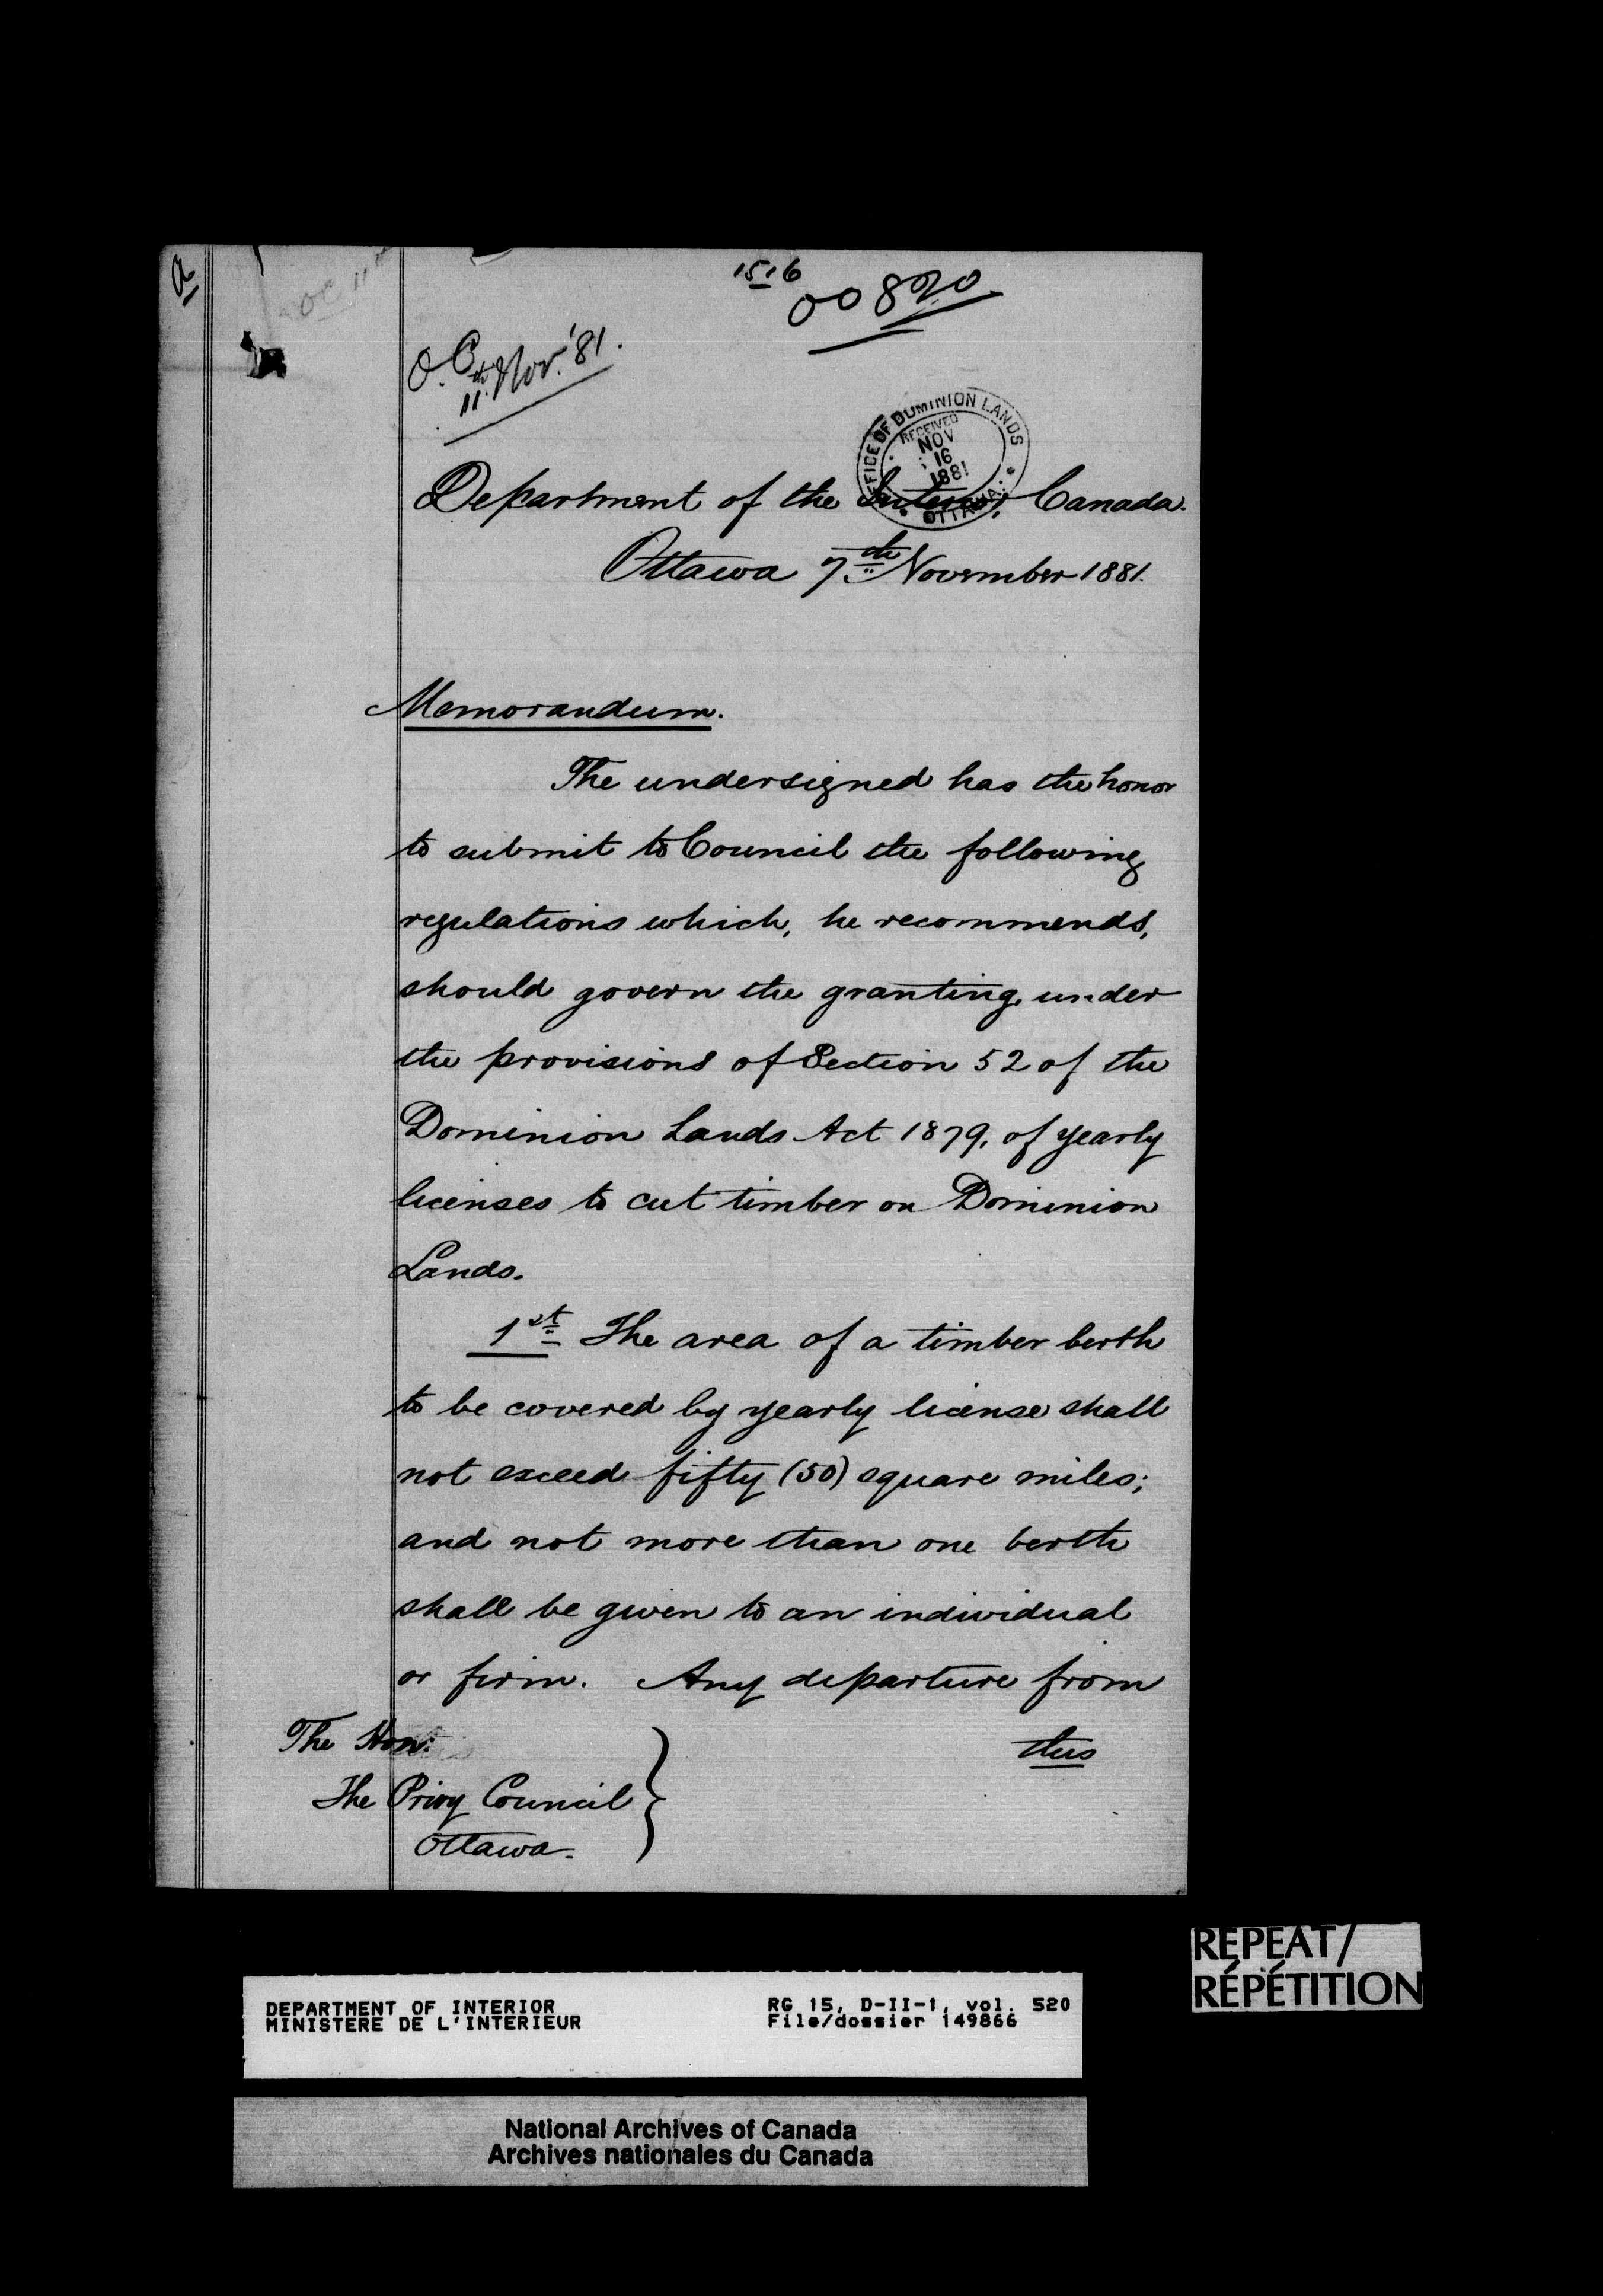 a
OC 11
1516
00820
O.C. 11th Nov. '81.
OFFICE OF DOMINION LANDS
RECEIVED
NOV
16
1881
OTTAWA
Department of the Interior, Canada.
Ottawa 7th November 1881.
Memorandum.
The undersigned has the honor
to submit to Council the following
regulations which, he recommends,
should govern the granting, under
the provisions of Section 52 of the
Dominion Lands Act 1879, of yearly
licenses to cut timber on Dominion
Lands.
1st The area of a timber berth
to be covered by yearly license shall
not exceed fifty (50) square miles;
and not more than one berth
shall be given to an individual
or firm. Any departure from
this
The Hon:
The Privy Council
Ottawa.
DEPARTMENT OF INTERIOR
MINISTERE DE L'INTERIEUR
RG 15, D-II-1, vol. 520
File/dossier 149866
REPEAT/
RÉPÉTITION
National Archives of Canada
Archives nationales du Canada